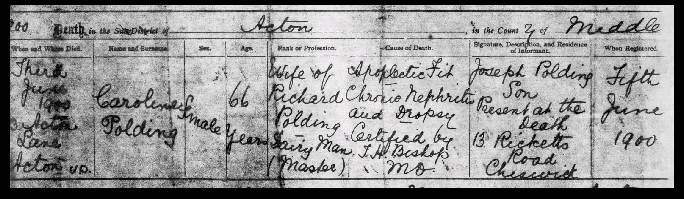 1900 Death in the Sub-District of Acton, in the County of Middle
When and Where Died. Name and Surname Sex. Age. Rank or Profession. Cause of Death. Signature, Description, and Residence of Informant. When Registered.
Third
June
1900
3 Acton
Lane
Acton U.D.
Caroline
Polding
Female
66
Years
Wife of
Richard
Polding
Dairy Man
(Master)
Apoplectic Fit
Chronic Nephritis
and Dropsy
Certified by
T.H. Bishop
MD
Joseph Polding
Son
Present at the
Death
13 Ricketts
Road
Chiswick
Fifth
June
1900